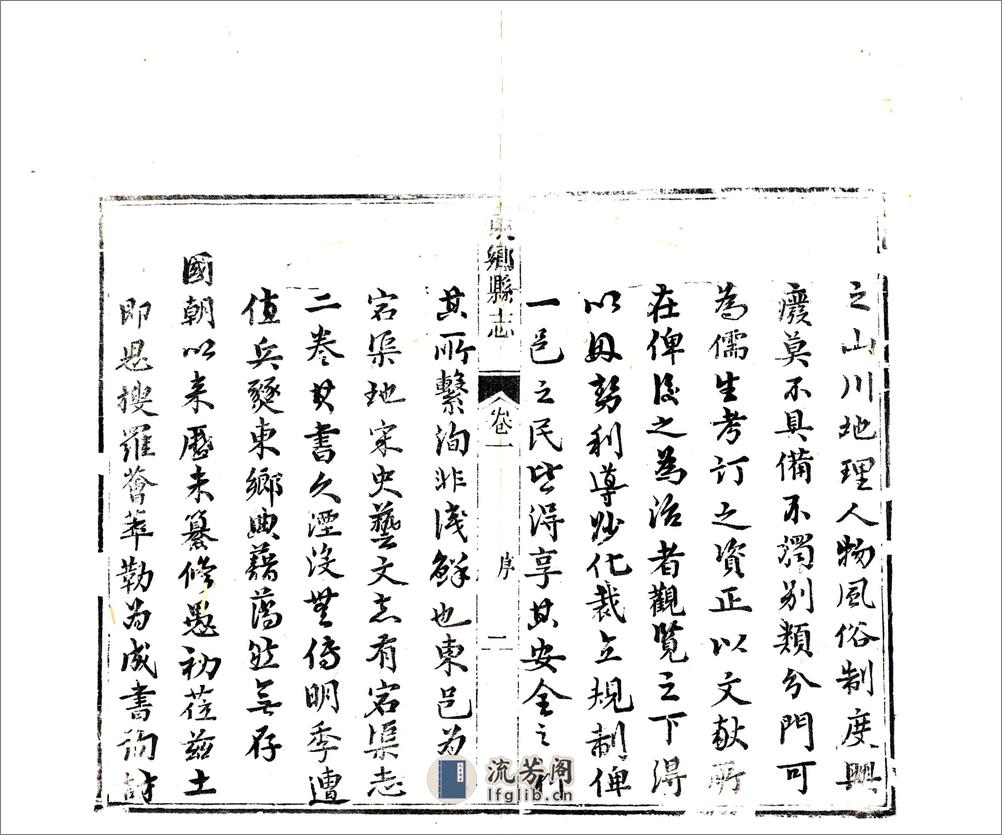 之山川地理人物風俗制度興
廢莫不具備不獨别類分門可
為儒生考訂之資正以文献所
在俾後之為治者觀覧之下得
以因勢利導妙化裁立規制俾
一邑之民皆得享其安全之利
東鄉縣志
卷一
序
二
其所繫洵非淺鮮也東邑為
宕渠地宋史藝文志有宕渠志
二卷其書久湮没無傳明季遭
值兵燹東鄉典藉蕩然無存
國朝以来歷未纂修愚初莅兹土
即思搜羅薈萃勒為成書詢訪
流芳阁
lfglib.cn